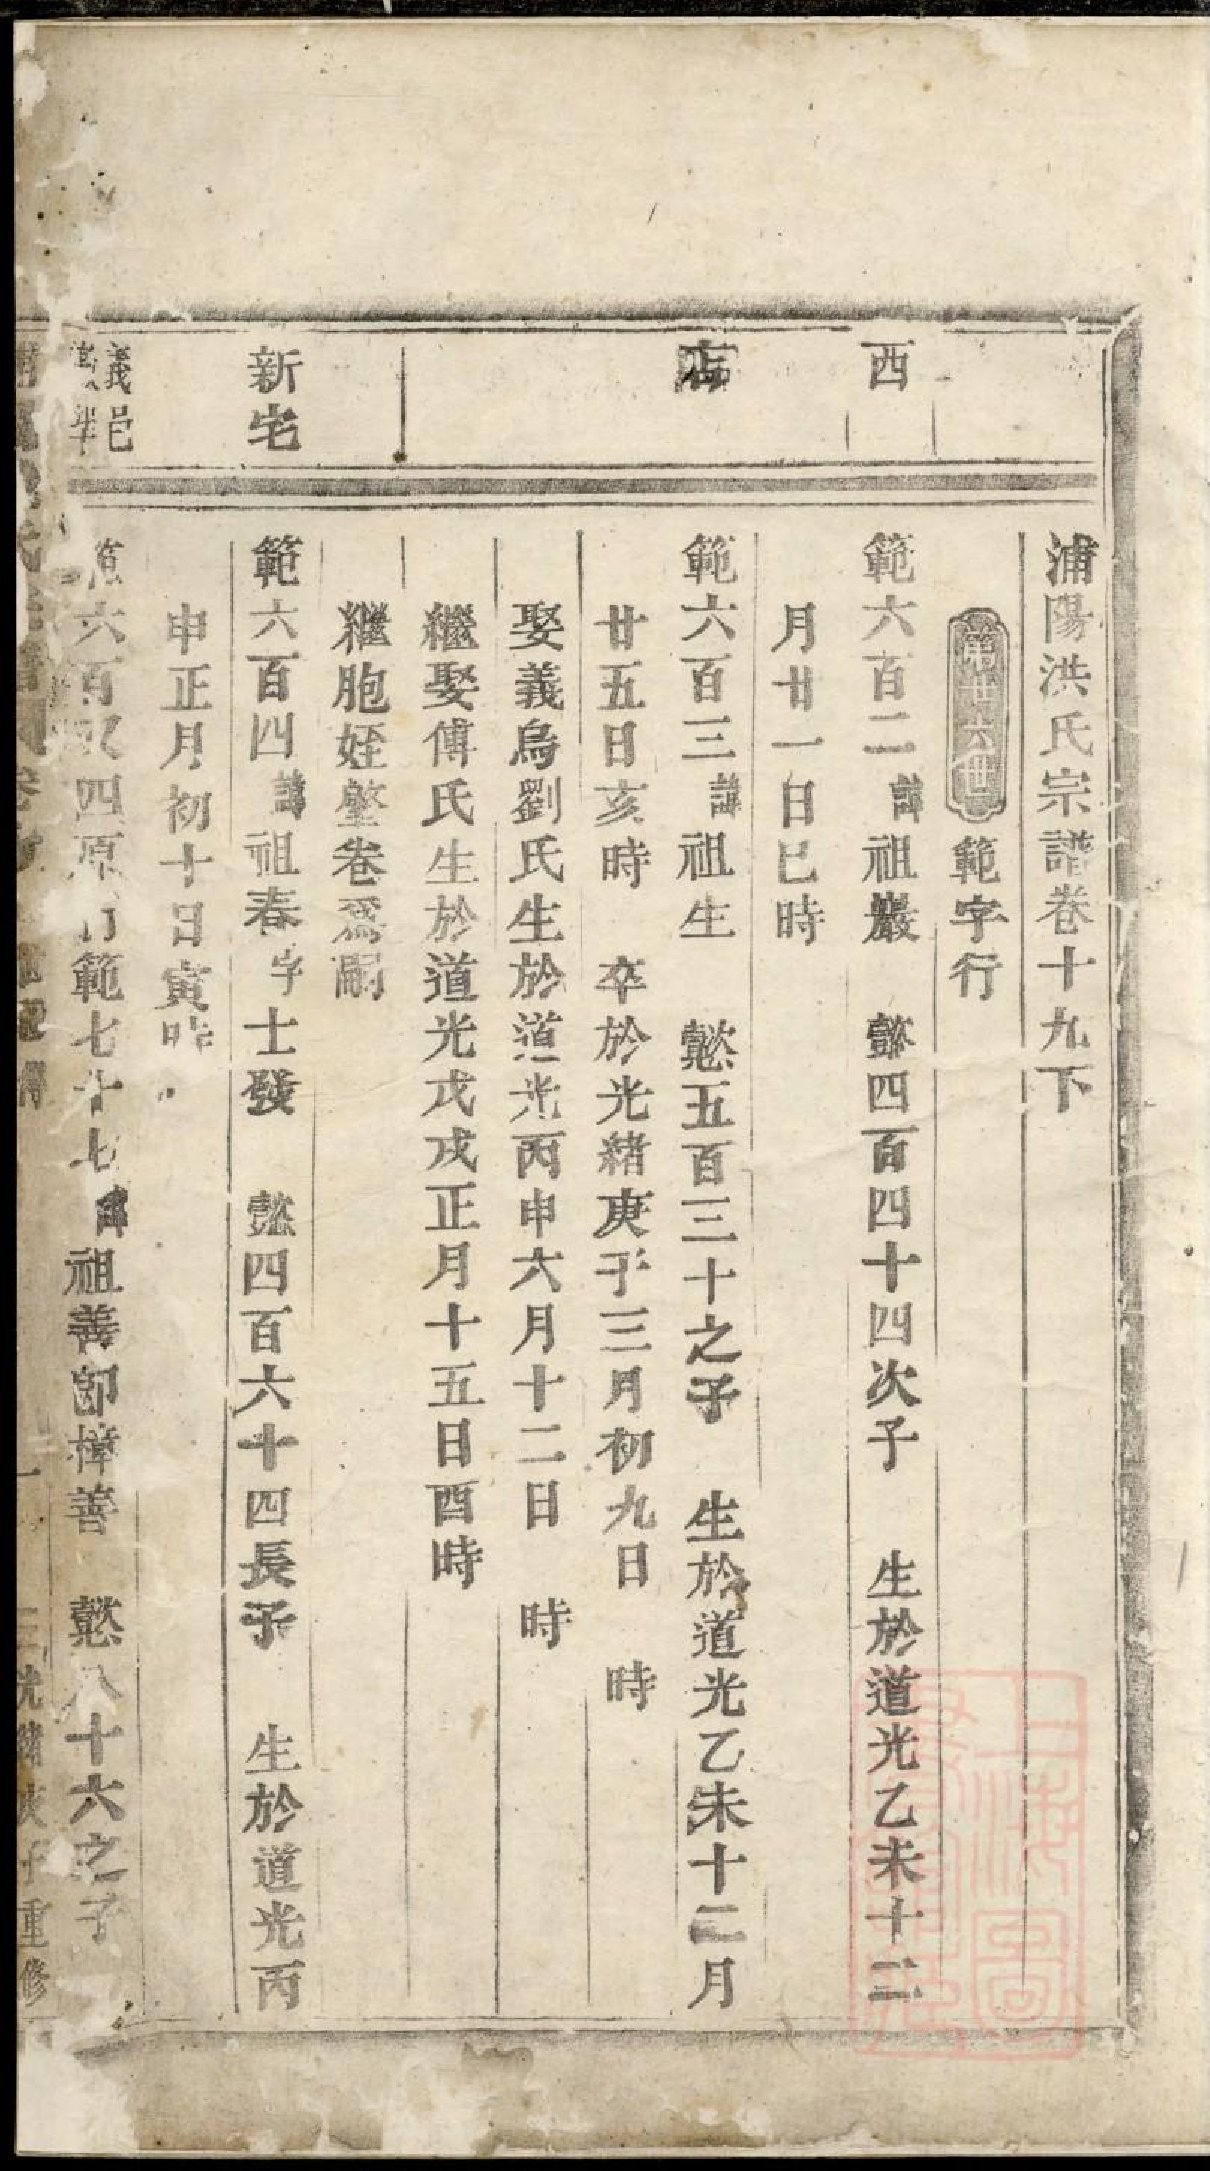 浦陽洪氏宗譜卷十九下
第廿六世 範字行
西
範六百二 諱 祖巖 懿四百四十四次子 生於道光乙未十二
月廿一日巳時
店
範六百三 諱 祖生 懿五百三十之子 生於道光乙未十二月
廿五日亥時 卒於光緒庚子三月初九日 時
娶義烏劉氏生於道光丙申六月十二日 時
繼娶傅氏生於道光戊戌正月十五日酉時
繼胞姪肇卷爲嗣
新宅
範六百四 諱 祖春 字 士發 懿四百六十四長子 生於道光丙
申正月初十日寅時
義邑
六百 四原行範七十七 諱 祖善卽樟善 懿八十六之子
光緒 子重修
上海圖書館藏